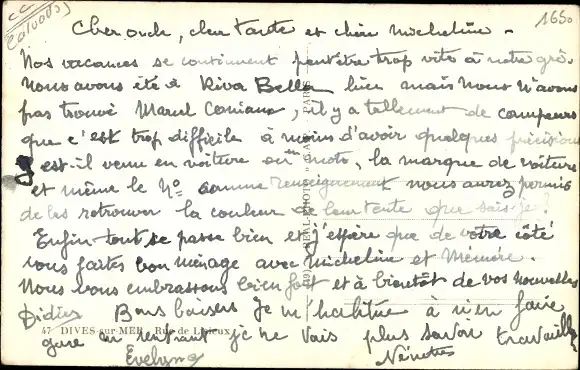 CC
(Calvados)
1650
Cher oncle, chère tante et chère Micheline -
Nos vacances se continuent peut être trop vite à notre gré.
Nous avons été à Riva Bella hier mais nous n'avons
pas trouvé Marcel, il y a tellement de campeurs
que c'est trop difficile à moins d'avoir quelques précisions
est-il venu en voiture ou moto, la marque de voiture
et même le N° comme renseignement nous aurez permis
de les retrouver la couleur de leur tente que sais-je?
Enfin tout se passe bien et j'espère que de votre côté
vous faites bon ménage avec Micheline et Mémère.
Nous vous embrassons bien fort et à bientôt de vos nouvelles
Didier Bons baisers Je m'habitue à rien faire
47 DIVES-sur-MER - Rue de Lisieux
gare en rentrant je ne vais plus savoir travailler
Evelyne Nénette